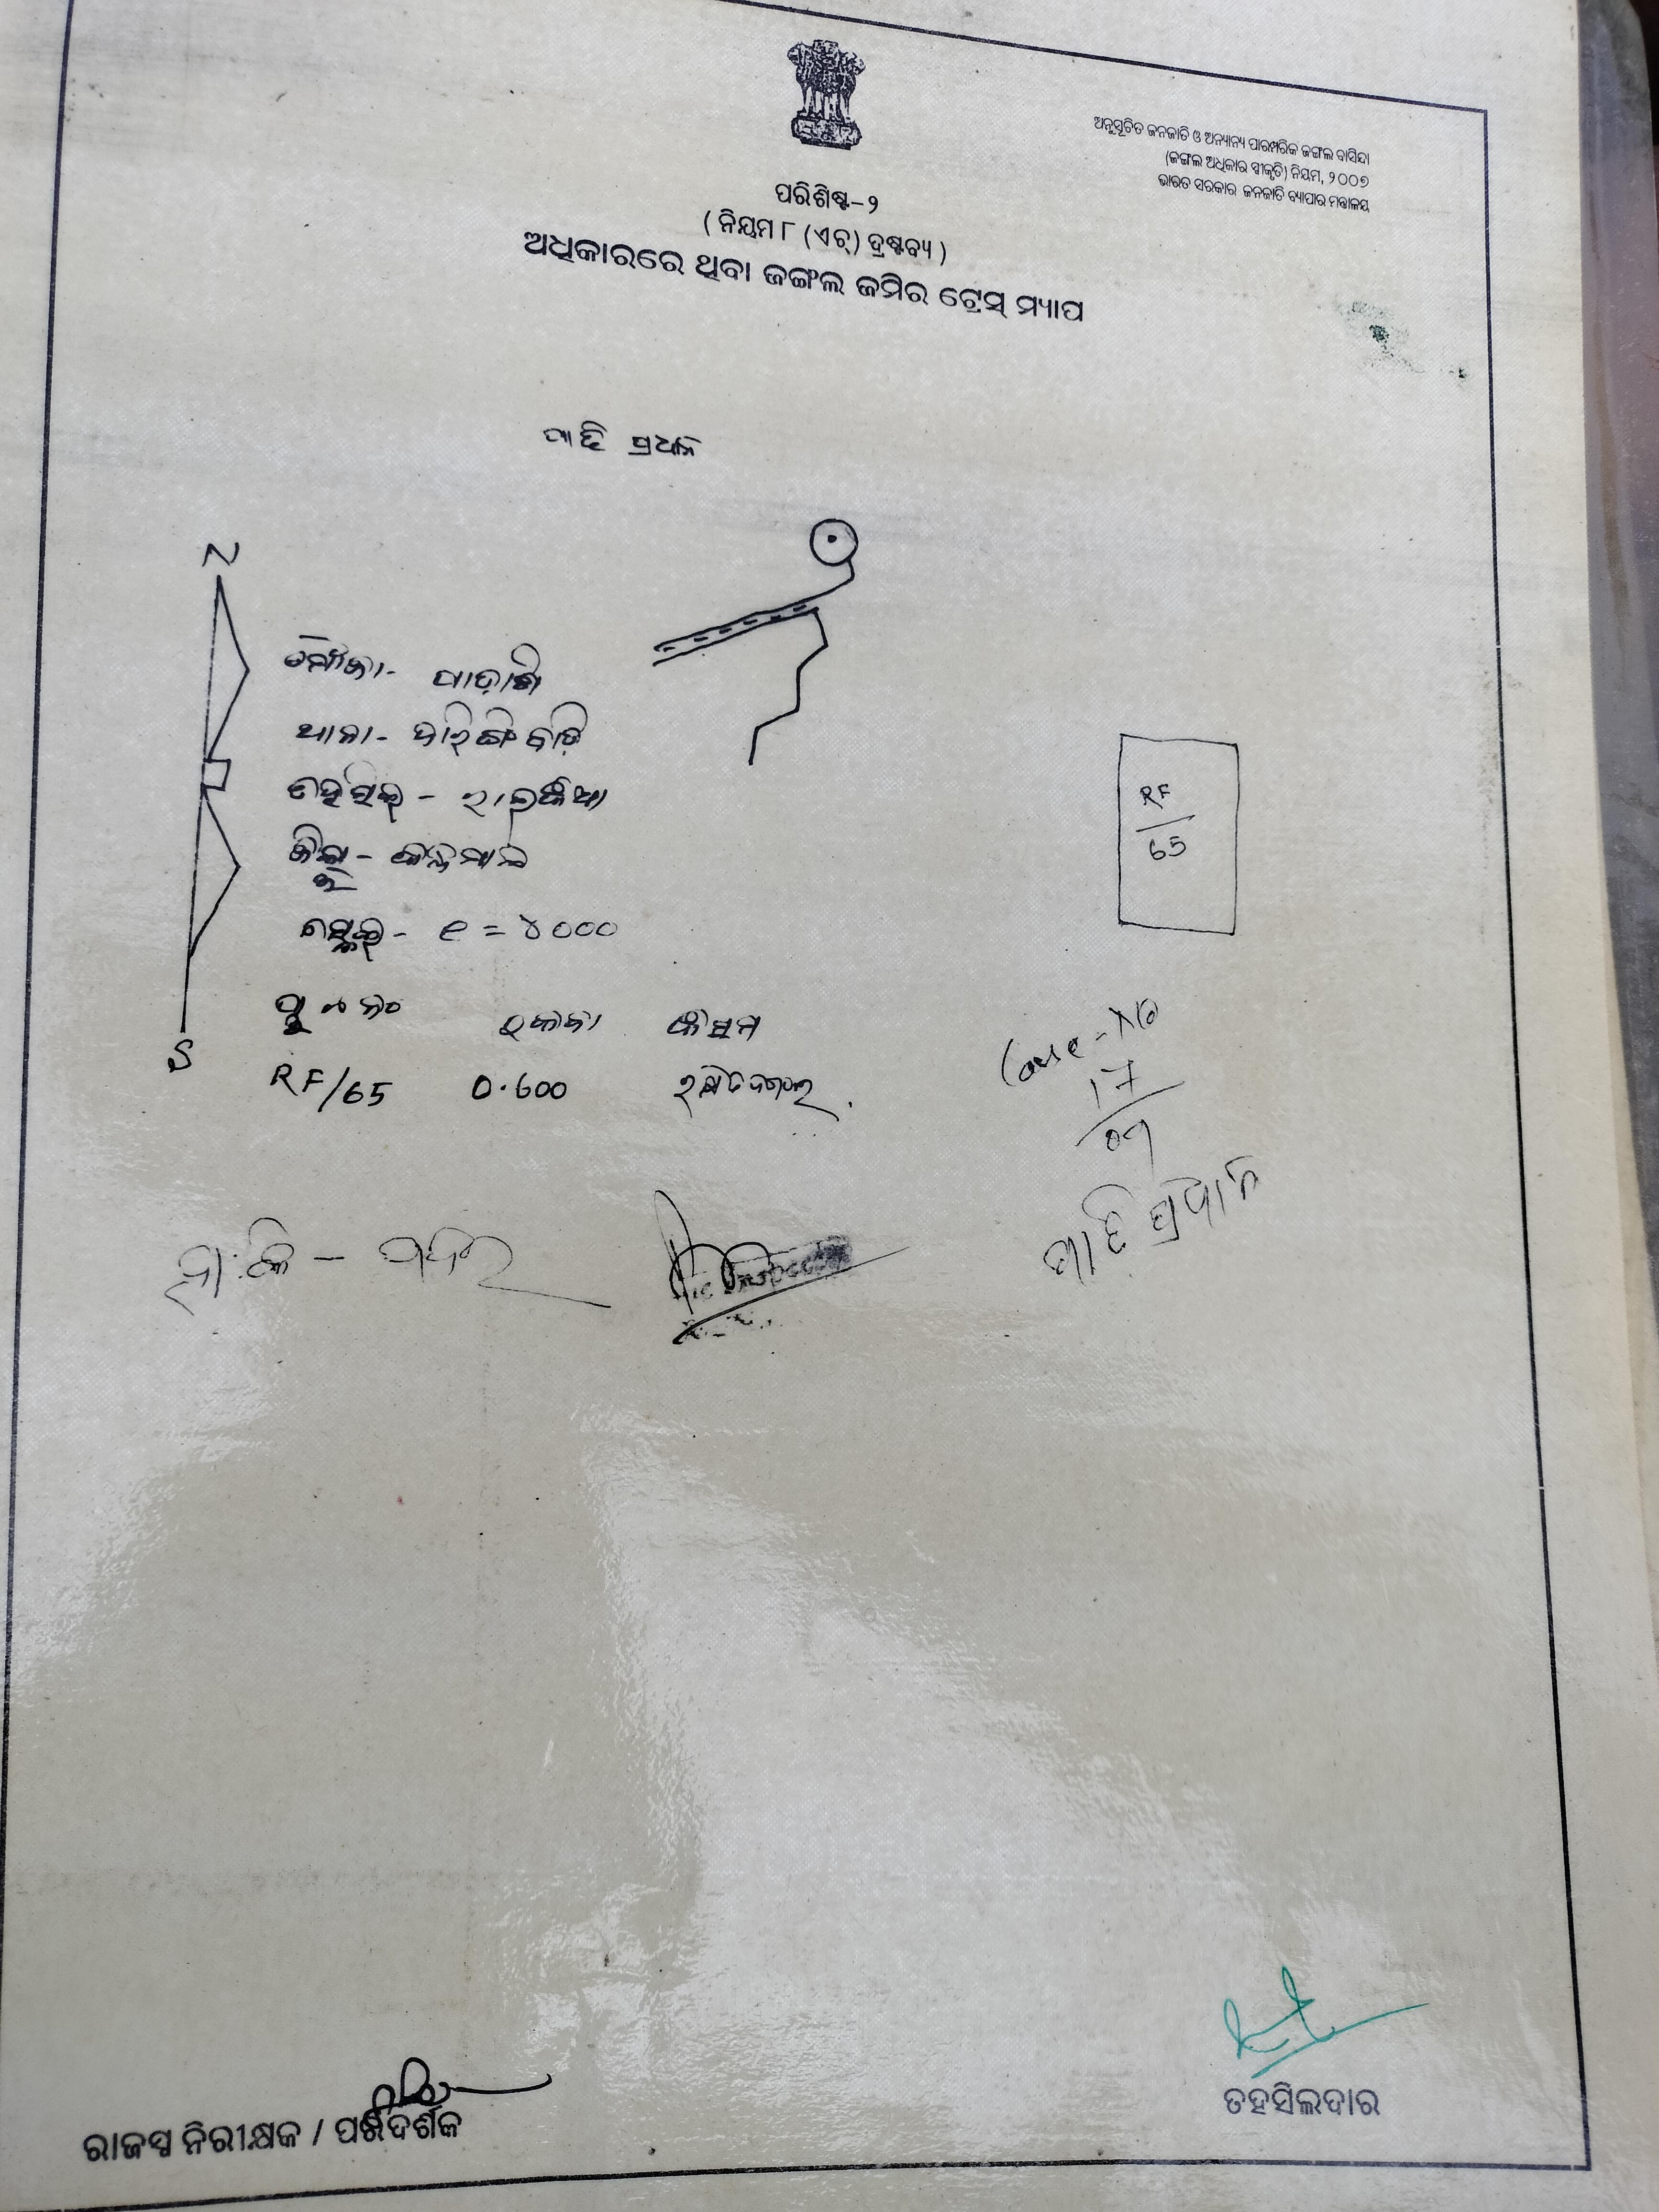 ଅନୁସୂଚିତ ଜନଜାତି ଓ ଅନ୍ୟାନ୍ୟ ପାରମ୍ପରିକ ଜଙ୍ଗଲ ବାସିନ୍ଦା
(ଜଙ୍ଗଲ ଅଧିକାର ସ୍ୱୀକୃତି) ନିୟମ, ୨୦୦୭
ଭାରତ ସରକାର ଜନଜାତି ବ୍ୟାପାର ମନ୍ତ୍ରାଳୟ
ପରିଶିଷ୍ଟ-୨
( ନିୟମ ୮ (ଏଚ୍) ଦ୍ରଷ୍ଟବ୍ୟ )
ଅଧିକାରରେ ଥିବା ଜଙ୍ଗଲ ଜମିର ଟ୍ରେସ୍ ମ୍ୟାପ
ପ୍ରଧାନ
N
ମୌଜା-
ଥାନା- ଦାରିଙ୍ଗିବାଡ଼ି
ତହସିଲ୍ - ରାଇକିଆ
ଜିଲ୍ଲା - କନ୍ଧମାଳ
ସ୍କେଲ୍ - ୧ = ୪୦୦୦
RF
65
ପ୍ଲଟ ନଂ ରକବା କିସମ
S
RF/65 0.600
Case-No
17
ପ୍ରଧାନ
ରାଜସ୍ୱ ନିରୀକ୍ଷକ / ପରିଦର୍ଶକ
ତହସିଲଦାର